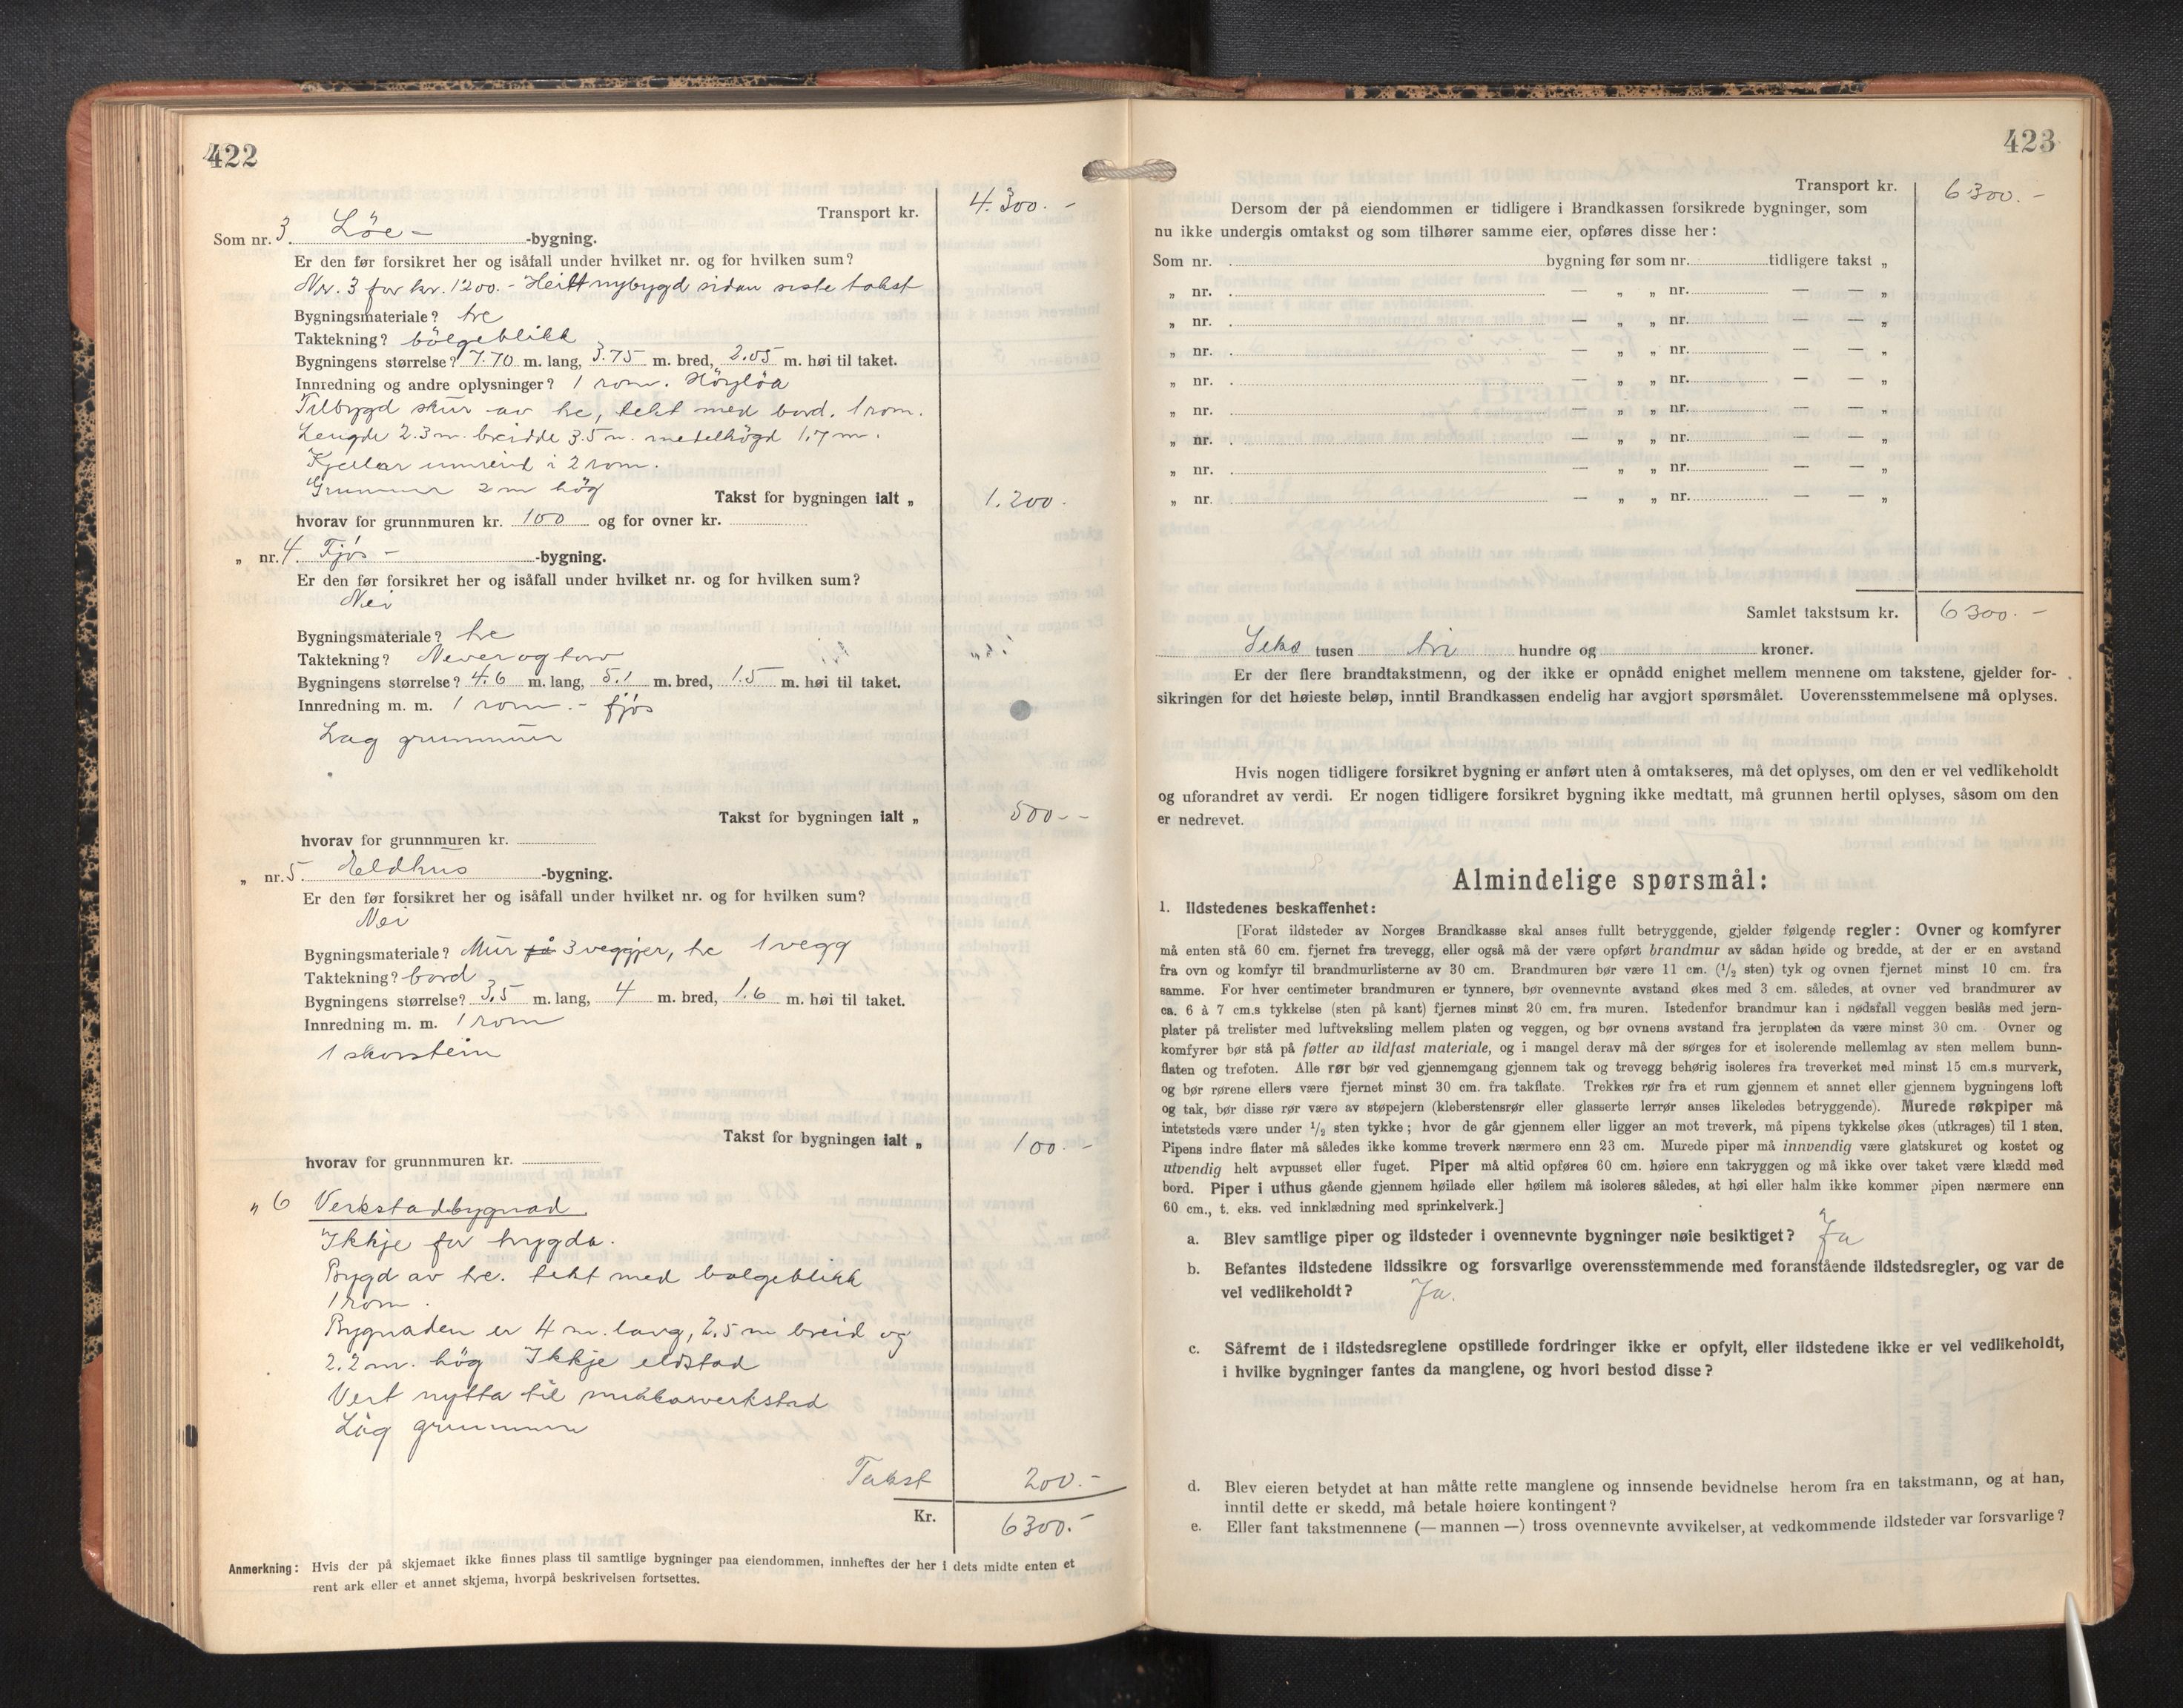 422
Transport kr. 4.300.-
Som nr. 3. Löe- -bygning.
Er den før forsikret her og isåfall under hvilket nr. og for hvilken sum?
Nr. 3 for kr. 1200.- Heilt nybygd sidan siste takst
Bygningsmateriale? tre
Taktekning? bölgeblikk
Bygningens størrelse? 7.70 m. lang, 3.75 m. bred, 2.05 m. høi til taket.
Innredning og andre oplysninger? 1 rom. Höyløa
Tilbygd skur av tre, tekt med bord. 1 rom.
Lengde 2.3 m. breidde 3.5 m. medelhögd 1.7 m.
Kjellar innreid i 2 rom.
Grunnmur 2 m hög Takst for bygningen ialt „ 1.200.
hvorav for grunnmuren kr. 100 og for ovner kr.
„ nr. 4. Fjös- -bygning.
Er den før forsikret her og isåfall under hvilket nr. og for hvilken sum?
Nei
Bygningsmateriale? tre
Taktekning? Never og torv
Bygningens størrelse? 4.6 m. lang, 5.1 m. bred, 1.5 m. høi til taket.
Innredning m. m. 1 rom. - fjös
Låg grunnmur
Takst for bygningen ialt „ 500.-
hvorav for grunnmuren kr.
„ nr. 5. Eldhus -bygning.
Er den før forsikret her og isåfall under hvilket nr. og for hvilken sum?
Nei
Bygningsmateriale? Mur på 3 veggjer, tre 1 vegg
Taktekning? bord
Bygningens størrelse? 3.5 m. lang, 4 m. bred, 1.6 m. høi til taket.
Innredning m. m. 1 rom
1 skorstein
Takst for bygningen ialt „ 100.-
hvorav for grunnmuren kr.
„ 6 Verkstadbygnad.
Ikkje før trygda.
Bygd av tre. tekt med bølgeblikk
1 rom.
Bygnaden er 4 m. lang, 2,5 m breid og
2.2 m. hög Ikkje eldstad
Vert nytta til snikkarverkstad
Låg grunnmur
Takst 200.-
Kr. 6300.-
Anmerkning: Hvis der på skjemaet ikke finnes plass til samtlige bygninger paa eiendommen, innheftes der her i dets midte enten et
rent ark eller et annet skjema, hvorpå beskrivelsen fortsettes.
423
Transport kr. 6300.-
Dersom der på eiendommen er tidligere i Brandkassen forsikrede bygninger, som
nu ikke undergis omtakst og som tilhører samme eier, opføres disse her:
Som nr. bygning før som nr. tidligere takst „
„ nr. — „ „ nr. — — „
„ nr. — „ „ nr. — — „
„ nr. — „ „ nr. — — „
„ nr. — „ „ nr. — — „
„ nr. — „ „ nr. — — „
„ nr. — „ „ nr. — — „
„ nr. — „ „ nr. — — „
„ nr. — „ „ nr. — — „
Samlet takstsum kr. 6300.-
Seks tusen tri hundre og kroner.
Er der flere brandtakstmenn, og der ikke er opnådd enighet mellem mennene om takstene, gjelder for-
sikringen for det høieste beløp, inntil Brandkassen endelig har avgjort spørsmålet. Uoverensstemmelsene må oplyses.
Hvis nogen tidligere forsikret bygning er anført uten å omtakseres, må det oplyses, om den er vel vedlikeholdt
og uforandret av verdi. Er nogen tidligere forsikret bygning ikke medtatt, må grunnen hertil oplyses, såsom om den
er nedrevet.
Almindelige spørsmål:
1. Ildstedenes beskaffenhet:
[Forat ildsteder av Norges Brandkasse skal anses fullt betryggende, gjelder følgende regler: Ovner og komfyrer
må enten stå 60 cm. fjernet fra trevegg, eller også må der være opført brandmur av sådan høide og bredde, at der er en avstand
fra ovn og komfyr til brandmurlisterne av 30 cm. Brandmuren bør være 11 cm. (1/2 sten) tyk og ovnen fjernet minst 10 cm. fra
samme. For hver centimeter brandmuren er tynnere, bør ovennevnte avstand økes med 3 cm. således, at ovner ved brandmurer av
ca. 6 à 7 cm.s tykkelse (sten på kant) fjernes minst 20 cm. fra muren. Istedenfor brandmur kan i nødsfall veggen beslås med jern-
plater på trelister med luftveksling mellem platen og veggen, og bør ovnens avstand fra jernplaten da være minst 30 cm. Ovner og
komfyrer bør stå på føtter av ildfast materiale, og i mangel derav må der sørges for et isolerende mellemlag av sten mellem bunn-
flaten og trefoten. Alle rør bør ved gjennemgang gjennem tak og trevegg behørig isoleres fra treverket med minst 15 cm.s murverk,
og bør rørene ellers være fjernet minst 30 cm. fra takflate. Trekkes rør fra et rum gjennem et annet eller gjennem bygningens loft
og tak, bør disse rør være av støpejern (kleberstensrør eller glasserte lerrør anses likeledes betryggende). Murede røkpiper må
intetsteds være under 1/2 sten tykke; hvor de går gjennem eller ligger an mot treverk, må pipens tykkelse økes (utkrages) til 1 sten.
Pipens indre flater må således ikke komme treverk nærmere enn 23 cm. Murede piper må innvendig være glatskuret og kostet og
utvendig helt avpusset eller fuget. Piper må altid opføres 60 cm. høiere enn takryggen og må ikke over taket være klædd med
bord. Piper i uthus gående gjennem høilade eller høilem må isoleres således, at høi eller halm ikke kommer pipen nærmere enn
60 cm., t. eks. ved innklædning med sprinkelverk.]
a. Blev samtlige piper og ildsteder i ovennevnte bygninger nøie besiktiget? Ja
b. Befantes ildstedene ildssikre og forsvarlige overensstemmende med foranstående ildstedsregler, og var de
vel vedlikeholdt? Ja.
c. Såfremt de i ildstedsreglene opstillede fordringer ikke er opfylt, eller ildstedene ikke er vel vedlikeholdt,
i hvilke bygninger fantes da manglene, og hvori bestod disse?
d. Blev eieren betydet at han måtte rette manglene og innsende bevidnelse herom fra en takstmann, og at han,
inntil dette er skedd, må betale høiere kontingent?
e. Eller fant takstmennene (— mannen —) tross ovennevnte avvikelser, at vedkommende ildsteder var forsvarlige?